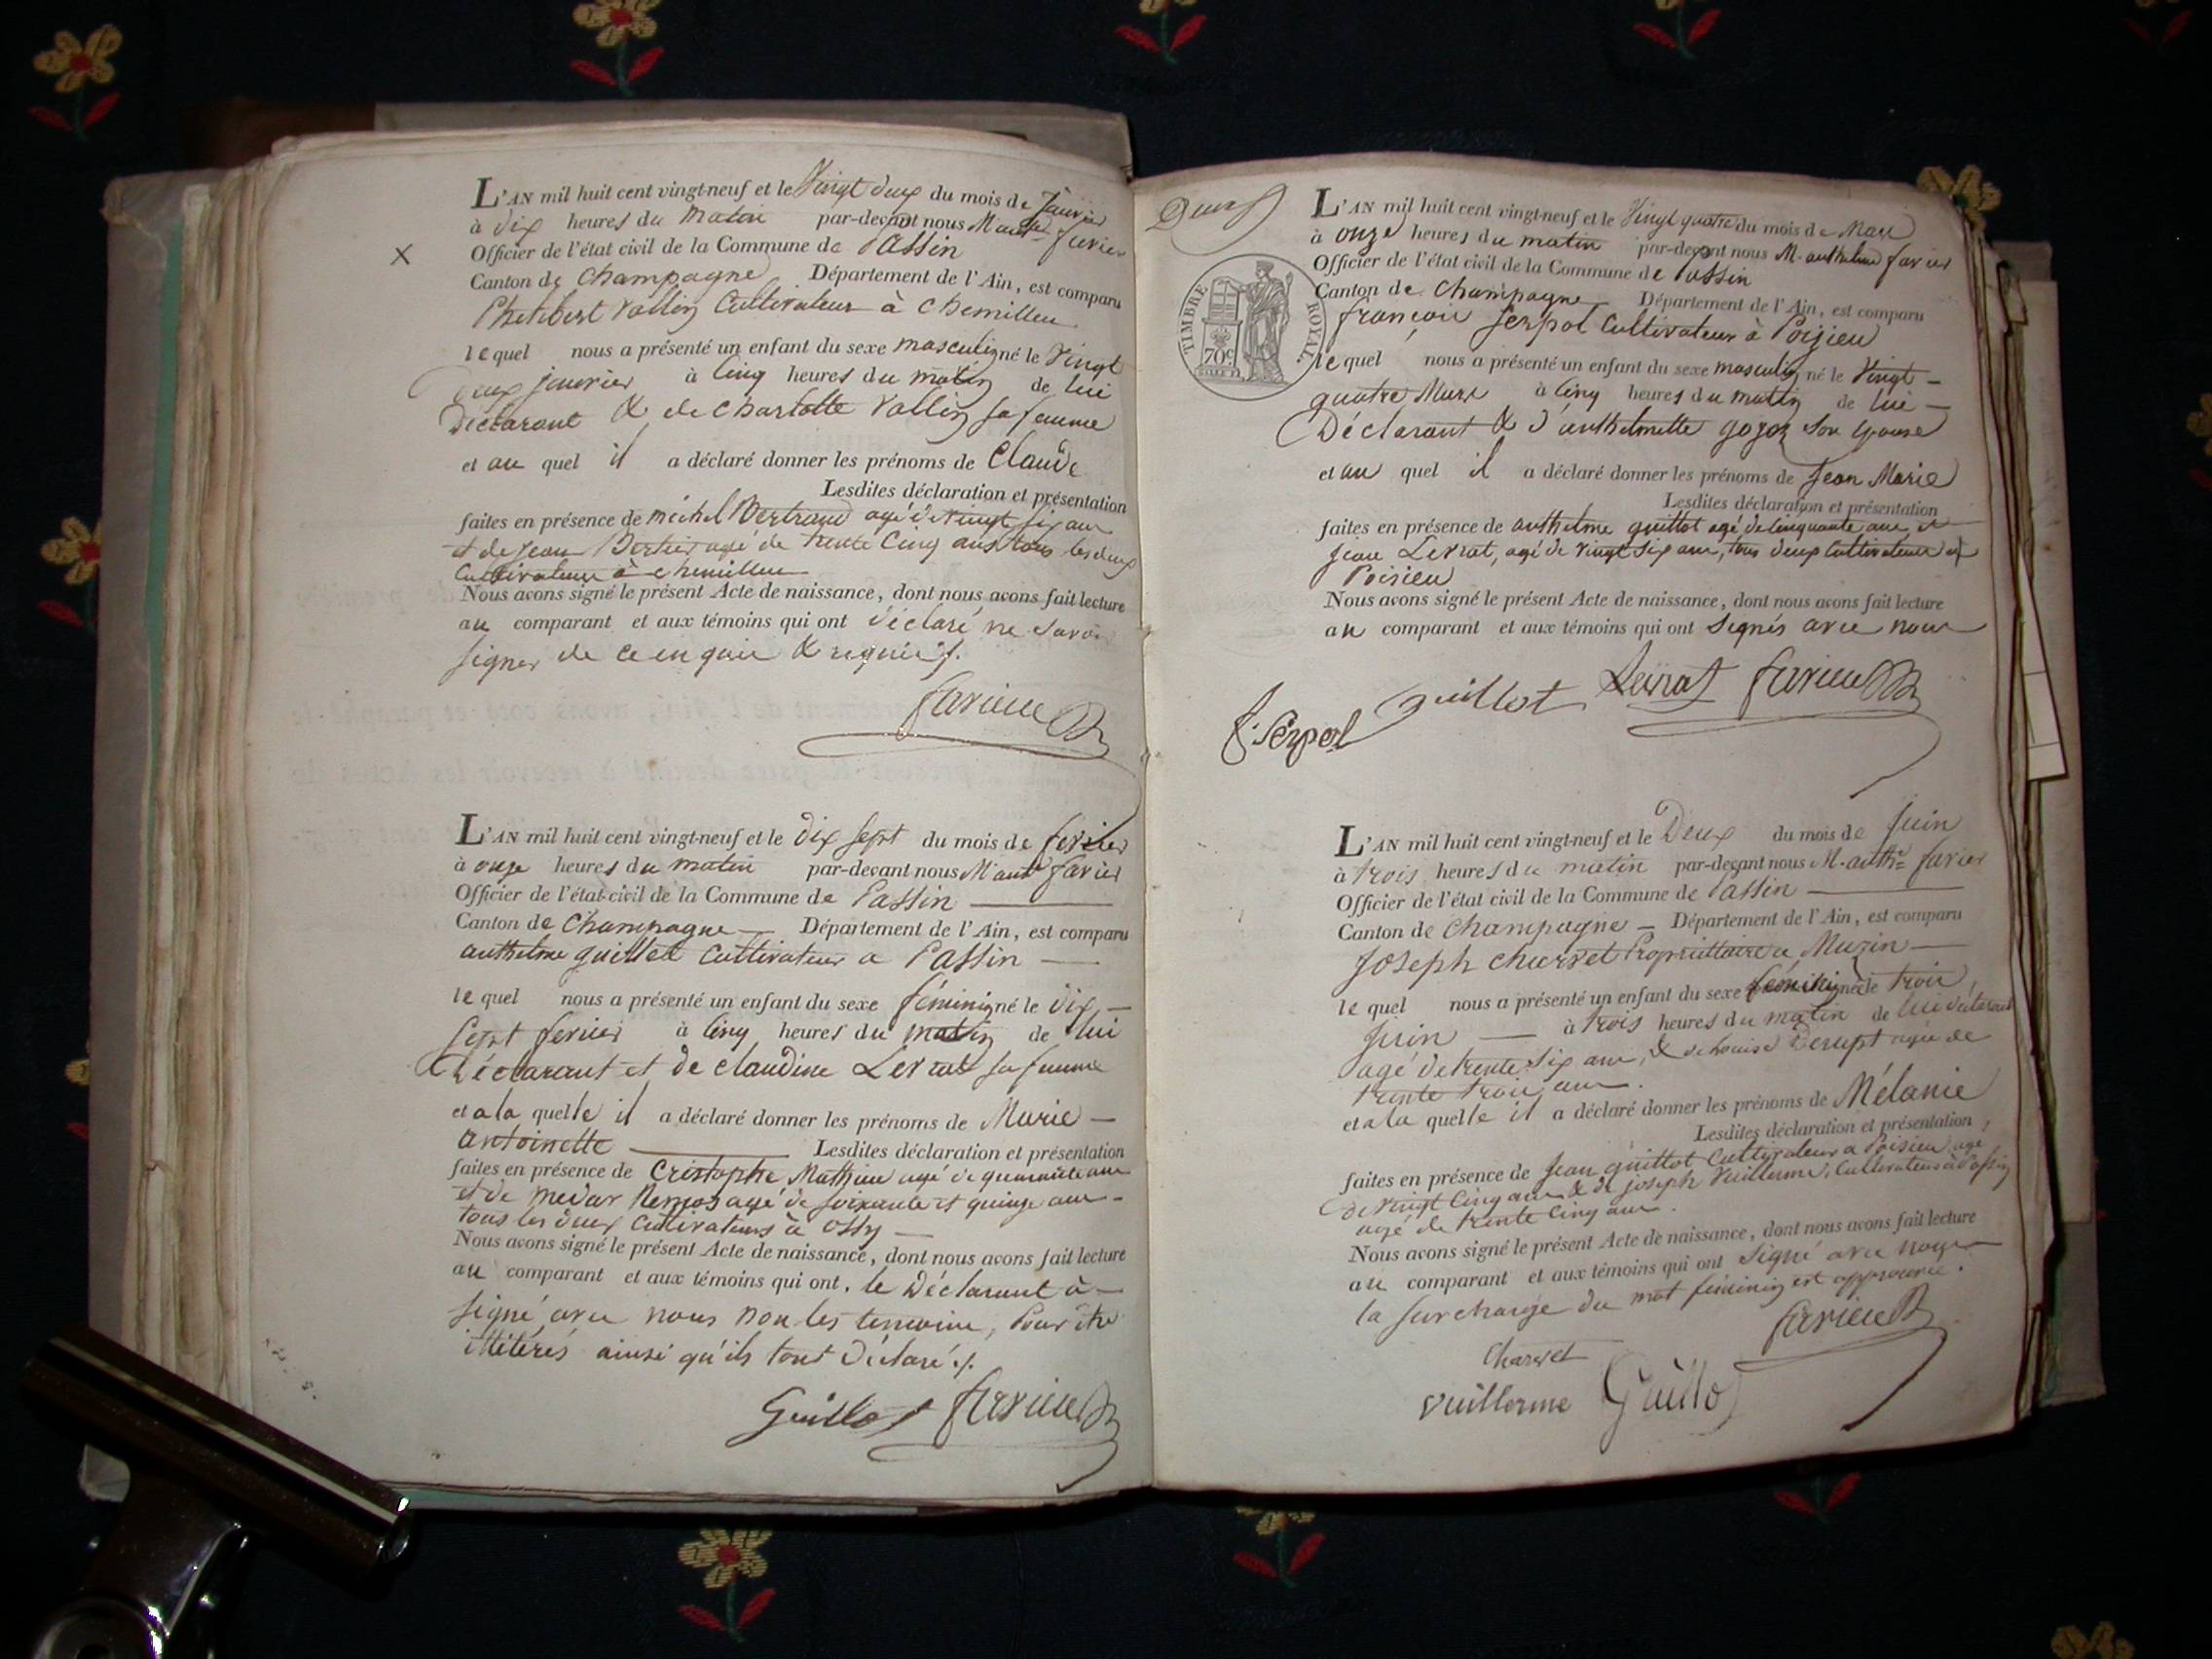 L'AN mil huit cent vingt-neuf et le Vingt deux du mois de Janvier
à dix heures du matin par-devant nous M. anthe favier
Officier de l'état civil de la Commune de Passin
Canton de Champagne Département de l'Ain, est comparu
Vallin Cultivateur à Chemilleu
lequel nous a présenté un enfant du sexe masculin né le Vingt
deux janvier à cinq heures du matin de lui
Déclarant & de Charlotte Vallin sa femme
et au quel il a déclaré donner les prénoms de Claude
Lesdites déclaration et présentation
faites en présence de michel Bertrand agé de vingt six ans
et de jean Bertier agé de trente cinq ans tous les deux
Cultivateurs à chemilleu
Nous avons signé le présent Acte de naissance, dont nous avons fait lecture
au comparant et aux témoins qui ont déclaré ne savoir
signer de ce enquis & requis ./.
favier
L'AN mil huit cent vingt-neuf et le dix sept du mois de fevrier
à onze heures du matin par-devant nous M. anthe favier
Officier de l'état civil de la Commune de Passin
Canton de Champagne Département de l'Ain, est comparu
anthelme guillot Cultivateur a Passin
lequel nous a présenté un enfant du sexe féminin né le dix
sept fevrier à cinq heures du matin de lui
Déclarant et de claudine Levrat sa femme
et a la quelle il a déclaré donner les prénoms de Marie
antoinette Lesdites déclaration et présentation
faites en présence de Cristophe Mathieu agé de quarante ans
et de medar agé de soixante et quinze ans
tous les deux Cultivateurs à Ossy
Nous avons signé le présent Acte de naissance, dont nous avons fait lecture
au comparant et aux témoins qui ont, le Déclarant à
signé avec nous non les temoins, Pour être
illitérés ainsi qu'ils l'ont Déclaré ./.
Guillot favier
Deux
TIMBRE ROYAL.
70c
L'AN mil huit cent vingt-neuf et le Vingt quatre du mois de Mars
à onze heures du matin par-devant nous M. anthelme favier
Officier de l'état civil de la Commune de Passin
Canton de Champagne Département de l'Ain, est comparu
françois Serpol Cultivateur à Poisieu
lequel nous a présenté un enfant du sexe masculin né le Vingt
quatre Mars à cinq heures du matin de lui
Déclarant & d'anthelmette gojoz son épouse
et au quel il a déclaré donner les prénoms de Jean Marie
Lesdites déclaration et présentation
faites en présence de anthelme guillot agé de cinquante ans et
jean Levrat, agé de vingt six ans, tous deux Cultivateurs a
Poisieu
Nous avons signé le présent Acte de naissance, dont nous avons fait lecture
au comparant et aux témoins qui ont Signés avec nous
f. Serpol guillot Levrat favier
L'AN mil huit cent vingt-neuf et le Deux du mois de Juin
à trois heures du matin par-devant nous M. anthe favier
Officier de l'état civil de la Commune de Passin
Canton de Champagne Département de l'Ain, est comparu
Joseph charvet Propriettaire a Muzin
lequel nous a présenté un enfant du sexe féminin né le trois
Juin à trois heures du matin de lui déclarant
agé de trente six ans, & de Louise Derupt agée de
trente trois ans.
et a la quelle il a déclaré donner les prénoms de Mélanie
Lesdites déclaration et présentation
faites en présence de Jean guillot Cultivateur a Poisieu agé
de vingt cinq ans & de joseph Vuillerme, Cultivateur à Passin
agé de trente cinq ans.
Nous avons signé le présent Acte de naissance, dont nous avons fait lecture
au comparant et aux témoins qui ont signé avec nous
la surcharge du mot féminin est approuvée.
favier
Charvet
Vuillerme Guillot